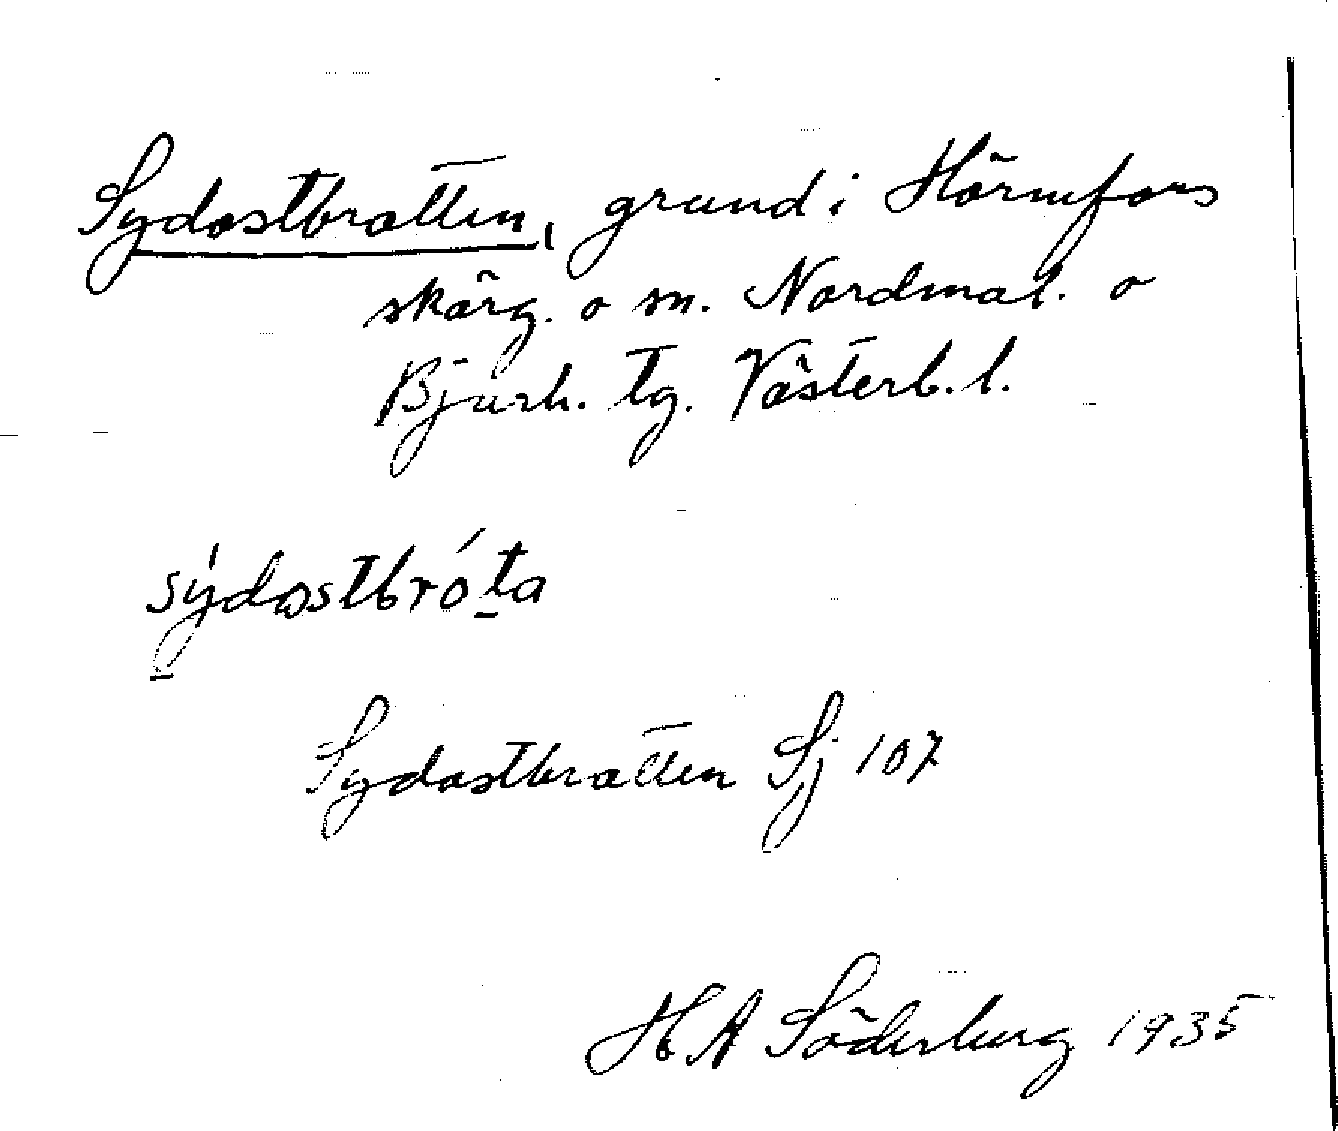 Sydostbrotten, grund i Hörnefors
skärg. o sn. Nordmal. o
Bjurh. tg. Västerb. l.
sýdostbróta
Sydostbrotten Sj 107
H A Söderberg 1935